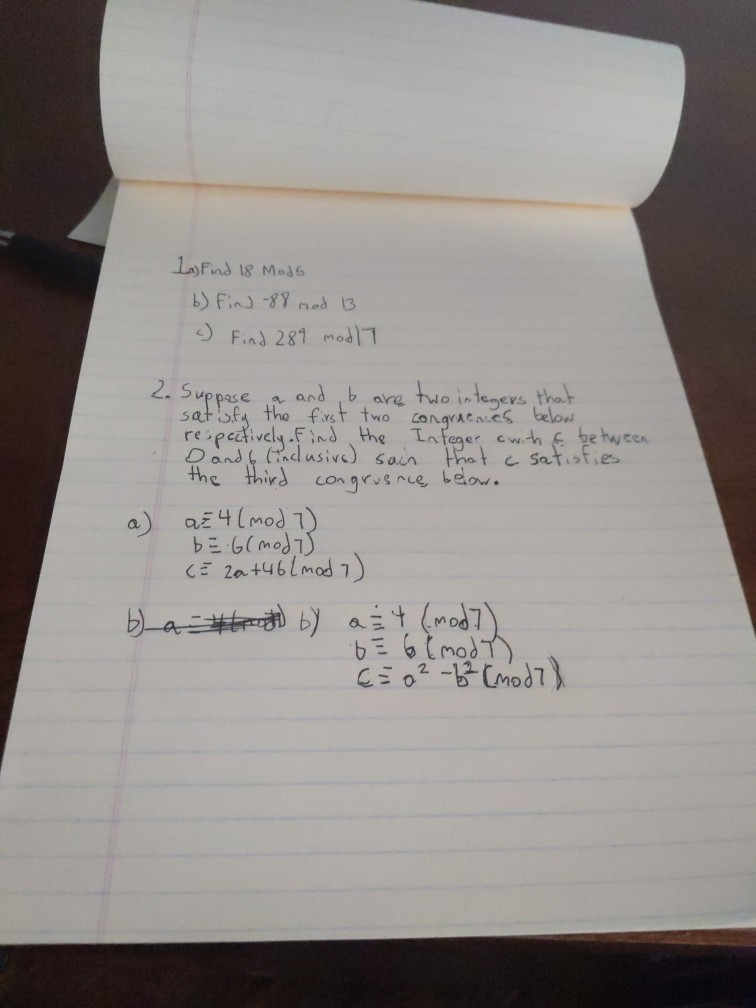 1.a) Find 18 Mod 6
b) Find -88 mod 13
c) Find 289 mod 17
2. Suppose a and b are two integers that
satisfy the first two congruences below
respectively. Find the Integer c with c between
0 and 6 (inclusive) that c satisfies
the third congruence below.
a) a ≡ 4 (mod 7)
b ≡ 6 (mod 7)
c ≡ 2a+4b (mod 7)
b) b) a ≡ 4 (mod 7)
b ≡ 6 (mod 7)
c ≡ a² - b² (mod 7)